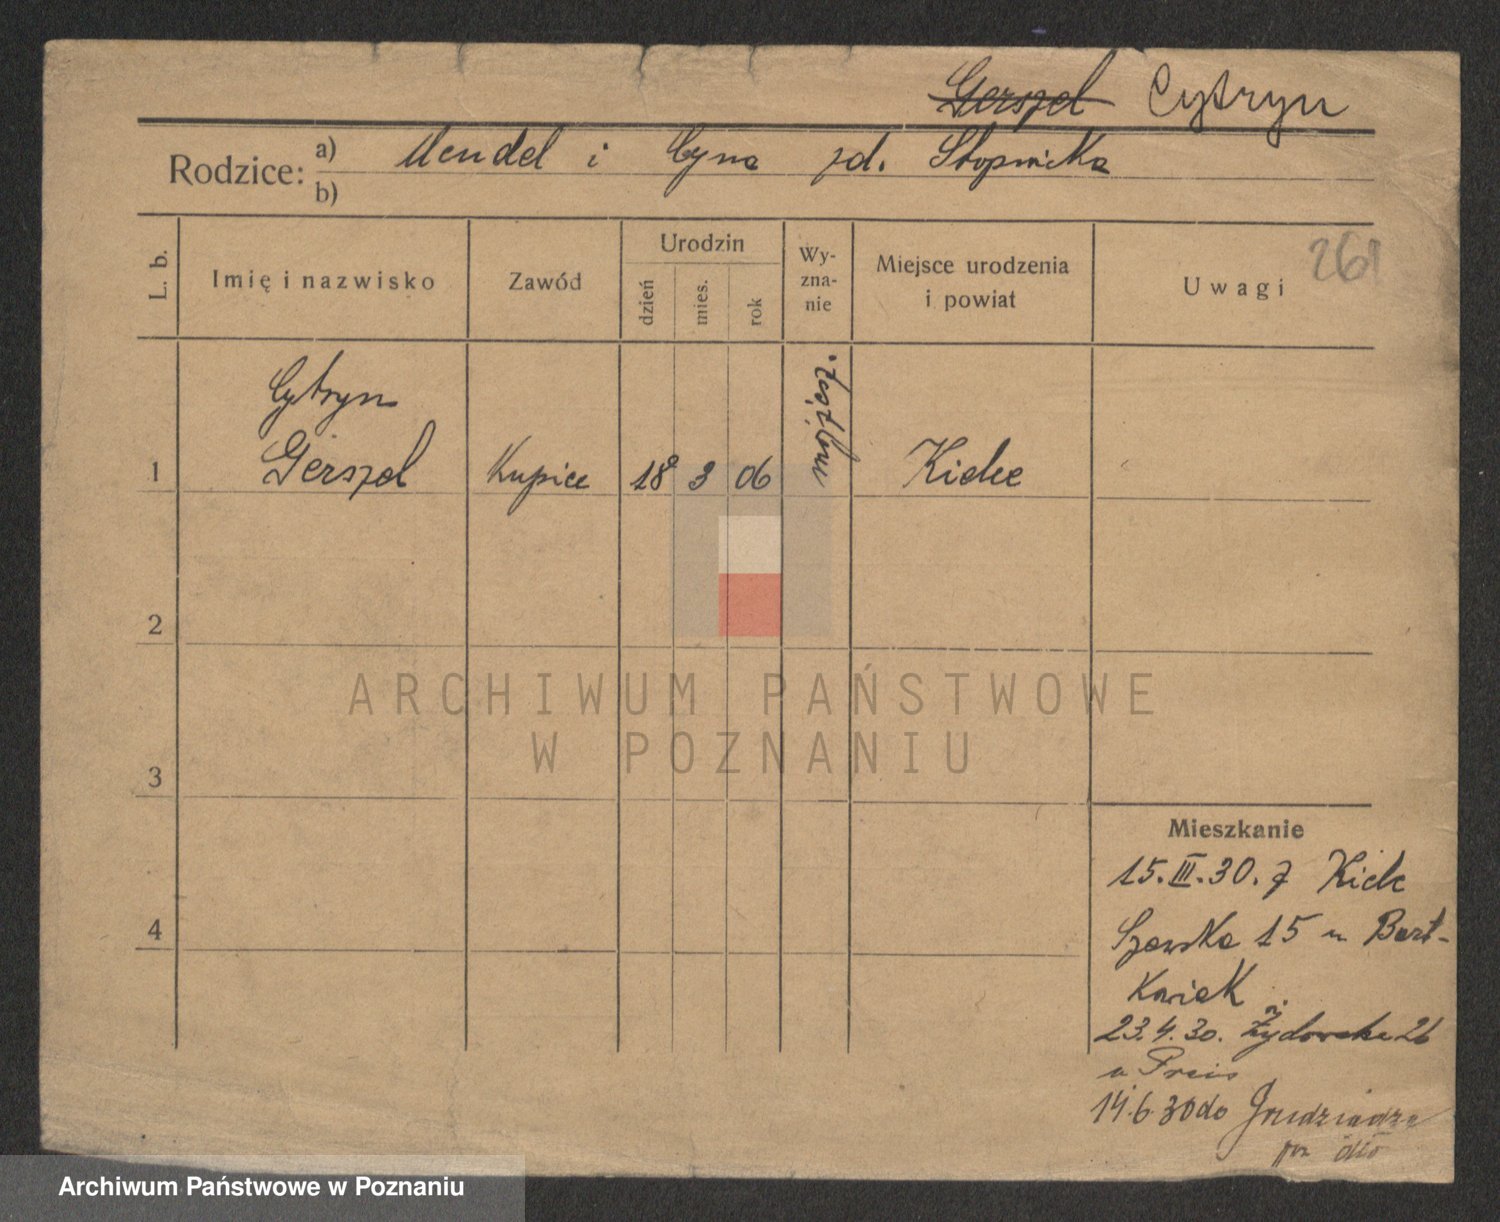 Gerszel Cytryn
Rodzice: a) Mendel i Cyna zd. Stopnicka
b)
L. b.
Imię i nazwisko
Zawód
Urodzin
dzień
mies.
rok
Wy-
zna-
nie
Miejsce urodzenia
i powiat
Uwagi
261
Cytryn
1 Gerszel Kupiec 18 3 06 mojżesz. Kielce
2
3
4
Mieszkanie
15.III.30. z Kielc
Szewska 15 u Bart-
kowiak
23.4.30. Żydowska 26
u Preis
14.6.30 do Grudziądza
ARCHIWUM PAŃSTWOWE
W POZNANIU
Archiwum Państwowe w Poznaniu